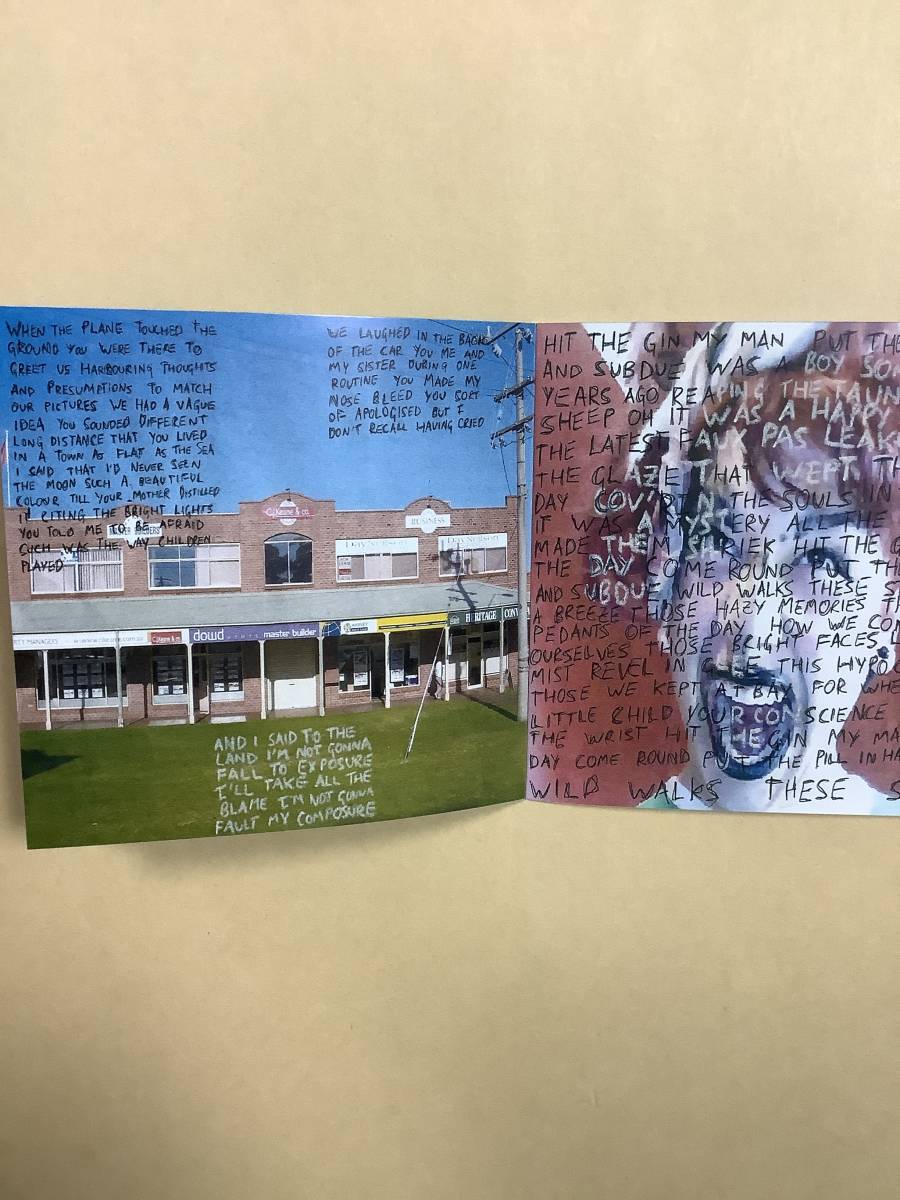 WHEN THE PLANE TOUCHED THE
GROUND YOU WERE THERE TO
GREET US HARBOURING THOUGHTS
AND PRESUMPTIONS TO MATCH
OUR PICTURES WE HAD A VAGUE
IDEA YOU SOUNDED DIFFERENT
LONG DISTANCE THAT YOU LIVED
IN A TOWN AS FLAT AS THE SEA
I SAID THAT I'D NEVER SEEN
THE MOON SUCH A BEAUTIFUL
COLOUR TILL YOUR MOTHER DISTILLED
IT CITING THE BRIGHT LIGHTS
YOU TOLD ME TO BE AFRAID
SUCH WAS THE WAY CHILDREN
PLAYED
WE LAUGHED IN THE BACK
OF THE CAR YOU ME AND
MY SISTER DURING ONE
ROUTINE YOU MADE MY
NOSE BLEED YOU SORT
OF APOLOGISED BUT I
DON'T RECALL HAVING CRIED
C.J. Keane & co.
BUSINESS
Day Neilson
Day Neilson
MANAGERS
C.J. Keane & co.
dowd
master builder
HERITAGE
AND I SAID TO THE
LAND I'M NOT GONNA
FALL TO EXPOSURE
I'LL TAKE ALL THE
BLAME I'M NOT GONNA
FAULT MY COMPOSURE
HIT THE GIN MY MAN PUT THE
AND SUBDUE WAS A BOY SO
YEARS AGO REAPING THE TAUN
SHEEP OH IT WAS A HAPPY
THE LATEST FAUX PAS LEAK
THE GLAZE THAT WEPT TH
DAY COV'RIN THE SOULS IN
IT WAS A MYSTERY ALL THE
MADE THEM SHRIEK HIT THE G
THE DAY COME ROUND PUT THE
AND SUBDUE WILD WALKS THESE S
A BREEZE THOSE HAZY MEMORIES TH
PEDANTS OF THE DAY HOW WE CON
OURSELVES THOSE BRIGHT FACES
MIST REVEL IN GLEE THIS HYPOC
THOSE WE KEPT AT BAY FOR WHE
LITTLE CHILD YOUR CONSCIENCE
THE WRIST HIT THE GIN MY MA
DAY COME ROUND PUT THE PILL IN HA
WILD WALKS THESE S